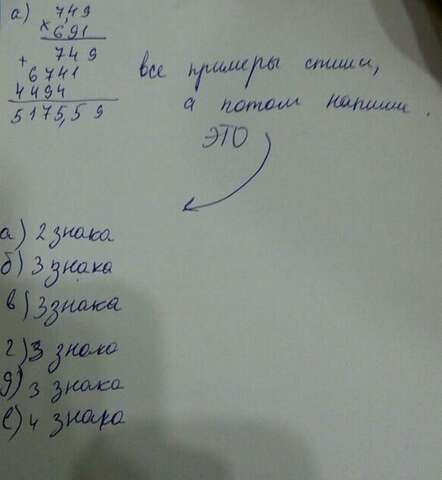 а) 749
× 6,91
749
+ 6741
4494
5175,59
все примеры спиши,
а потом напиши.
ЭТО
а) 2 знака
б) 3 знака
в) 3 знака
г) 3 знака
д) 3 знака
е) 4 знака